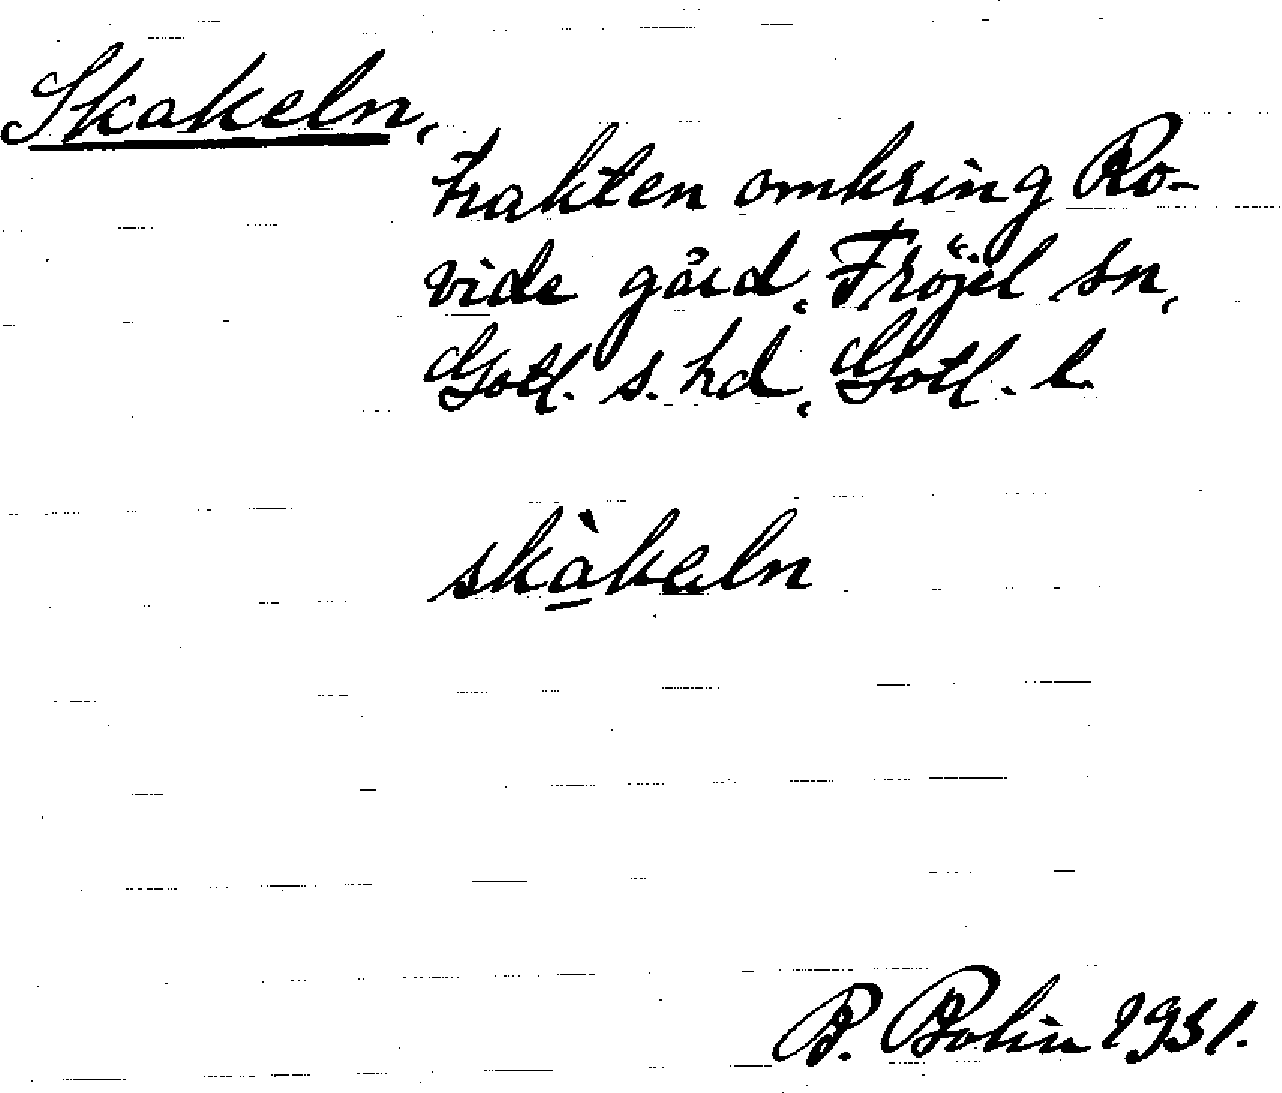 Skakeln,
trakten omkring Ro-
vide gård, Fröjel sn,
Gotl. s. hd, Gotl. l.
skàkeln
P. Bolin 1931.